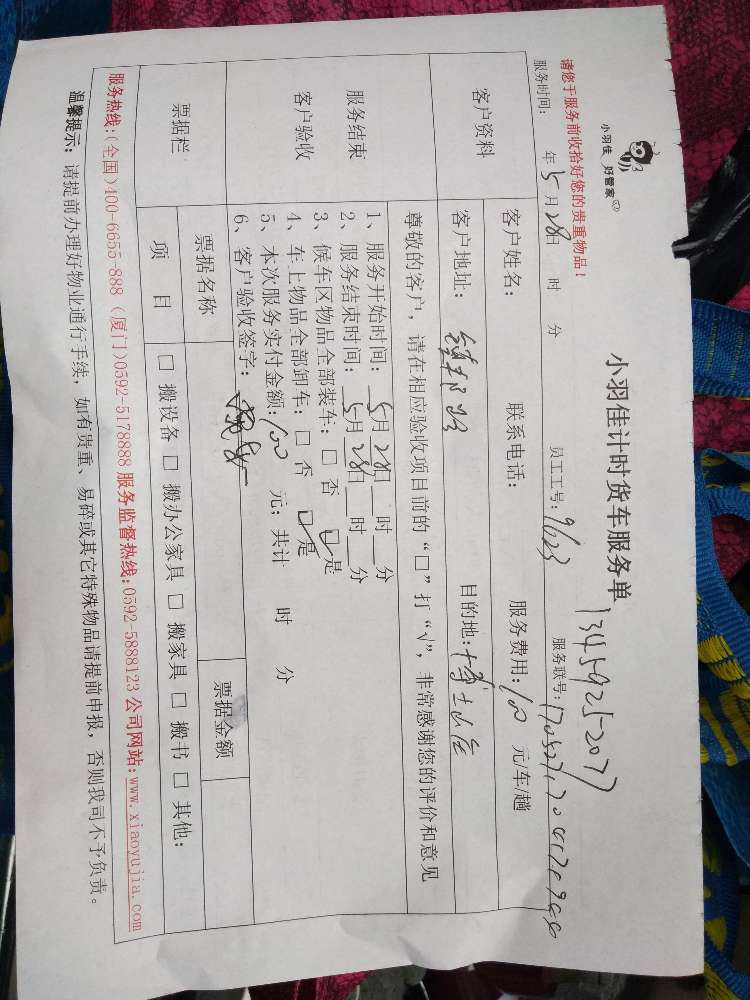 小羽佳 好管家
小羽佳计时货车服务单
13459252077
请您于服务前收拾好您的贵重物品!
服务时间: 年5月28日 时 分 员工工号:9623 服务联号:
客户资料
客户姓名: 联系电话: 服务费用:100 元/车/趟
客户地址: 目的地:
尊敬的客户,请在相应验收项目前的“口”打“√”,非常感谢您的评价和意见
服务结束
客户验收
1、服务开始时间:5月28日 时 分
2、服务结束时间:5月28日 时 分
3、候车区物品全部装车:□ 否 ☑ 是
4、车上物品全部卸车:□ 否 ☑ 是
5、本次服务实付金额:100 元; 共计 时 分
6、客户验收签字:
票据栏
票据名称 票据金额
项 目 □ 搬设备 □ 搬办公家具 □ 搬家具 □ 搬书 □ 其他:
服务热线:(全国)400-6655-888 (厦门)0592-5178888 服务监督热线:0592-5888123 公司网站:www.xiaoyujia.com
温馨提示: 请提前办理好物业通行手续, 如有贵重、易碎或其它特殊物品请提前申报, 否则我司不予负责。